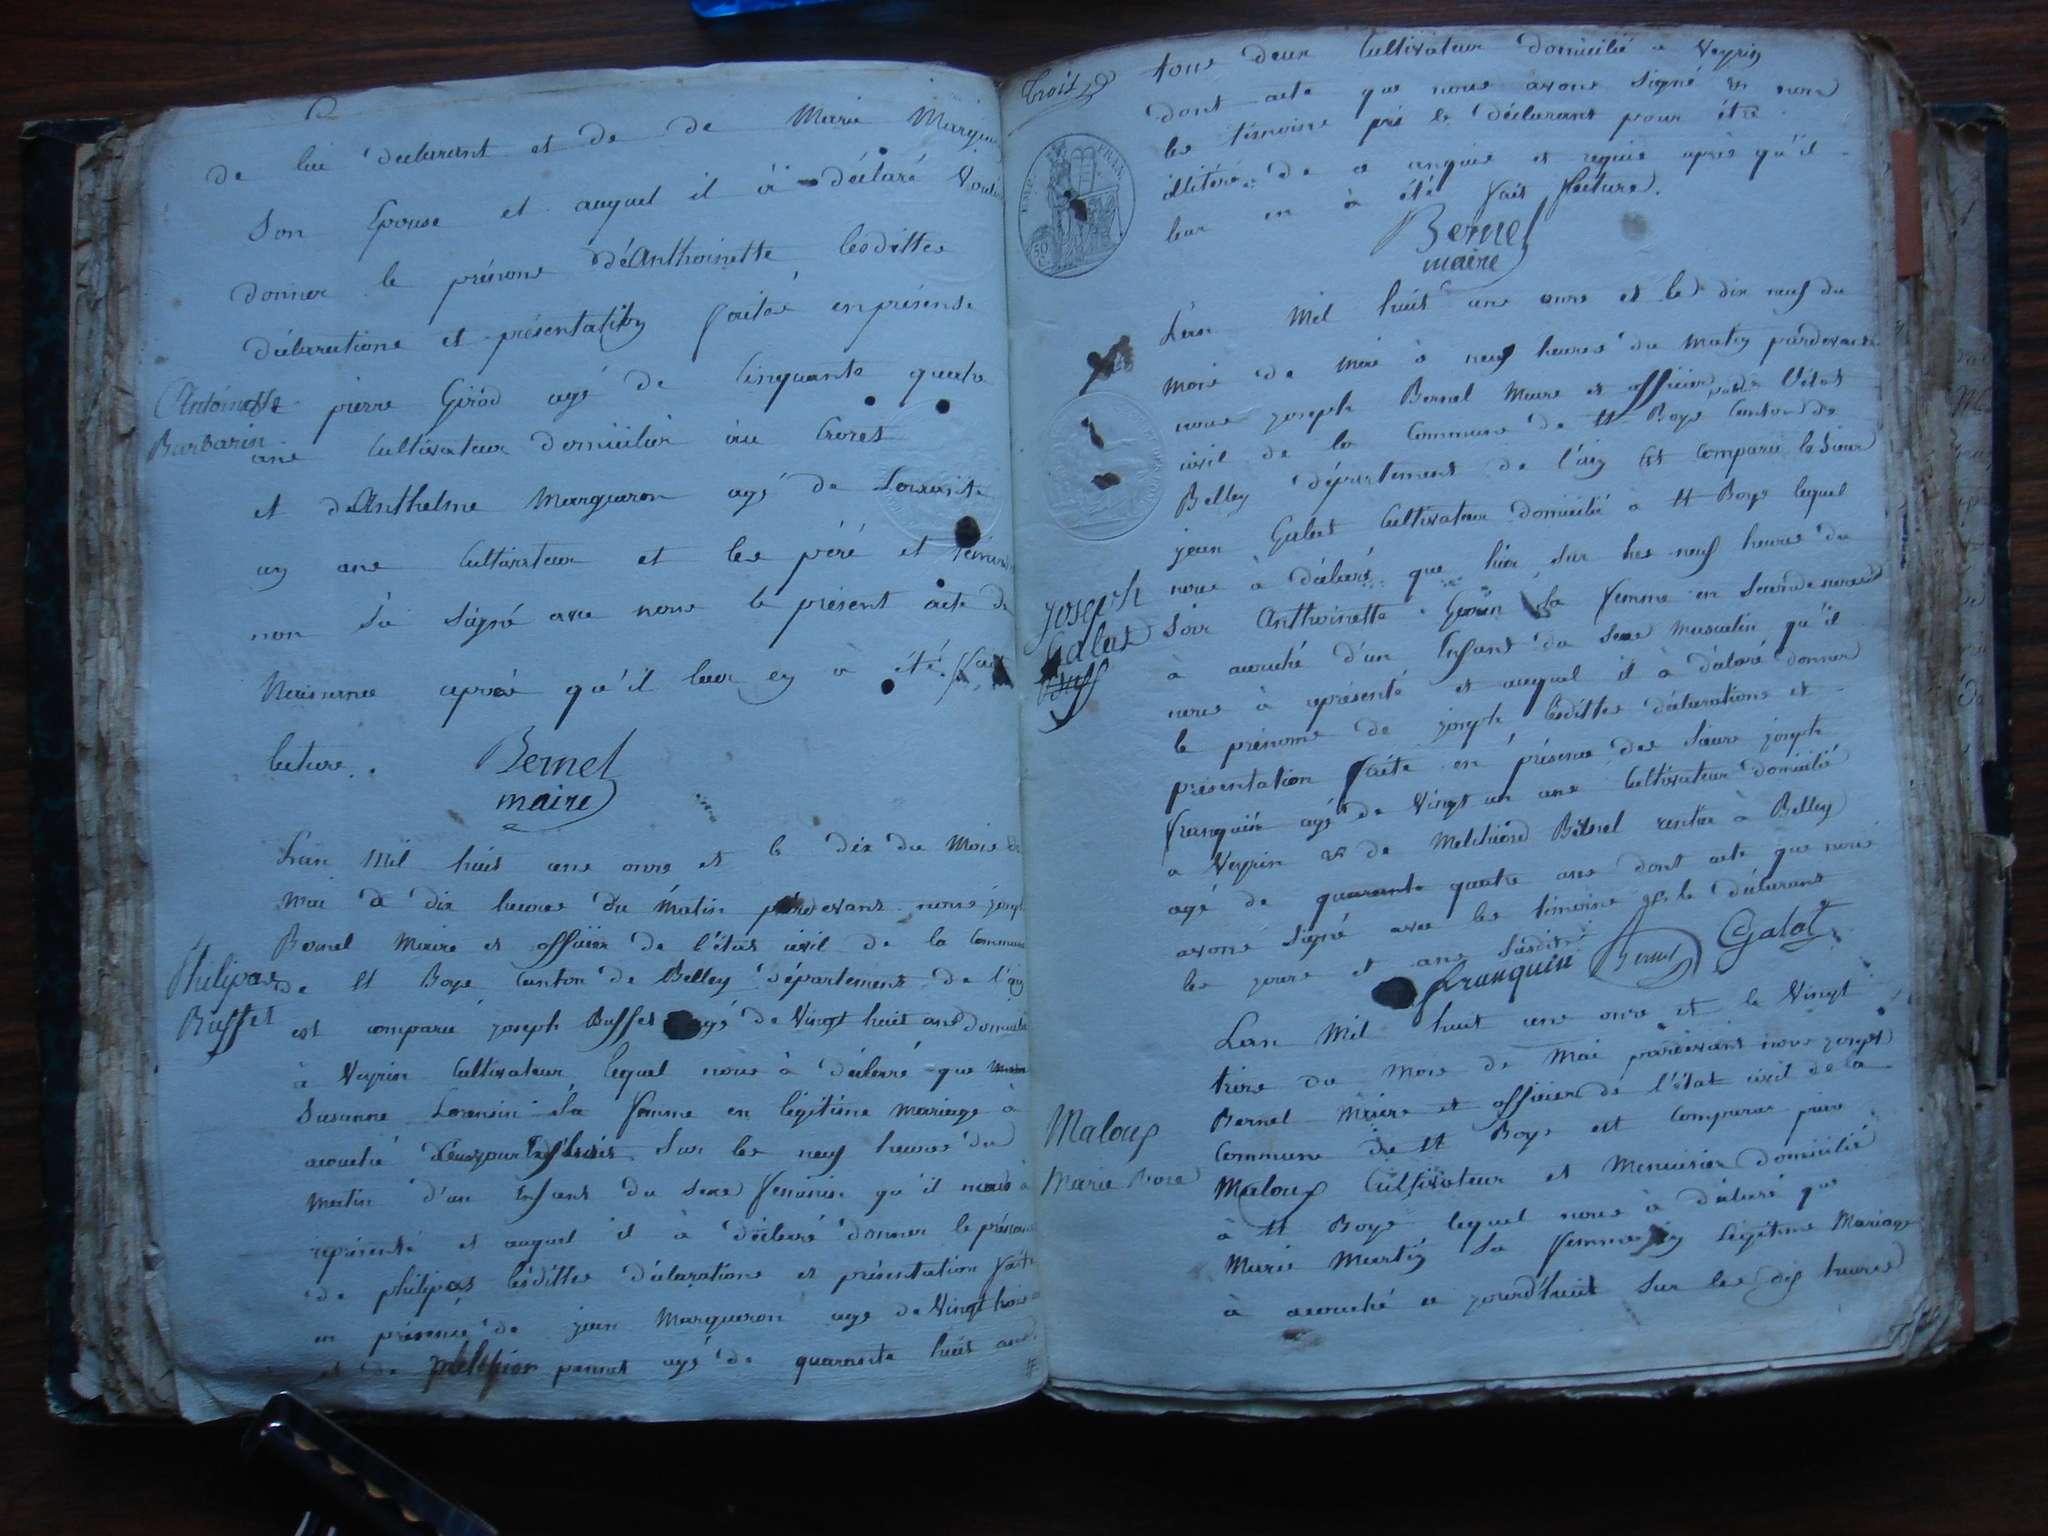 de lui déclarant et de de Marie
Son Epouse et auquel il à déclaré
donner le prénoms déAnthoinette lesdittes
déclarations et présentation faites en présense
Antoinette
Barbarin
pierre Girod agé de Cinquante quatre
ans Cultivateur domicilier au
et deAnthelme Margueron agé de Soixante
un ans Cultivateur et les péré et témoins
non Sù Signé avec nous le présent acte de
Naissance après qu'il leur en à été fait
lecture.
Bernel
maire
Lan Mil huit cens onze et le dix du Mois de
Mai à dix heures du Mátin pardevant nous joseph
Bernel Maire et officier de l'état civil de la Commune
Philipas
Buffet
de St Boys Canton de Belley département de l'ain
est comparu joseph Buffet agé de Vingt huit ans domicilié
à Veyrin Cultivateur lequel nous à déclaré que
Susanne Lorensin Sa femme en légitime Mariage à
acouché Sur les neuf heures du
matin d'un Enfant du Sexe féminin qu'il nous à
représenté et auquel il à déclaré donner le prénoms
de philipas lésdittes déclarations et présentation faite
en présence de jean Margueron agé de Vingt trois
et de pernet agé de quarante huit ans
Trois
tous deux Cultivateur domicilié a Veyrin
dont acte que nous avons Signé et non
les témoins le déclarant pour être
illitéré de ce enquis et requis après qu'il
leur en à été fait lecture.
EMP. FRAN.
50
C.
Bernel
maire
L'an Mil huit cens onze et le dix neuf du
mois de Mai à neuf heures du Matin pardevant
nous joseph Bernel Maire et officier de l'état
civil de la Commune de St Boys Canton de
Belley département de l'ain est Comparu le Sieur
jean Galat Cultivateur domicilié à St Boys lequel
Joseph
Galat
nous à déclaré que hier Sur les neuf heures du
Soir Anthoinette Sa femme en Seconde noces
à acouché d'un Enfant du Sexe Masculin qu'il
nous à représenté et auquel il à déclaré donner
le prénoms de joseph lésdittes déclarations et
présentation faite en présence des Sieurs joseph
franquin agé de Vingt un ans Cultivateur domicilié
a Veyrin et de Melchiord Bernel rentier à Belley
agé de quarante quatre ans dont acte que nous
avons Signé avec les témoins et le déclarant
les jours et ans Susdit
franquin Bernel Galat
Lan Mil huit cens onze et le Vingt
trois du Mois de Mai pardevant nous joseph
Bernel Maire et officier de l'état civil de la
Maloup
Marie
Commune de St Boys est Comparus pierre
Maloup Cultivateur et Menuisier domicilié
à St Boys lequel nous à déclaré que
Marie Martin Sa femme en Légitime Mariage
à acouché a jourd'huit Sur les dix heures